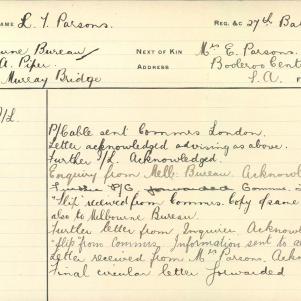 NAME L. T. Parsons. REG. &C 27th Bat
urne Bureau NEXT OF KIN Mrs E. Parsons.
A. Piper ADDRESS Booleroo Cent
Murray Bridge S.A.
P/L.
P/Cable sent Commrs London.
Letter acknowledged advising as above.
Further I/L. Acknowledged.
Enquiry from Melb: Bureau. Acknowl
P/C. forwarded Commrs.
"Slip" received from Commrs. Copy of same
also to Melbourne Bureau.
Further letter from Enquirer Acknowl
"Slip" from Commrs. Information sent to
Letter received from Mrs Parsons. Ack
Final circular letter forwarded